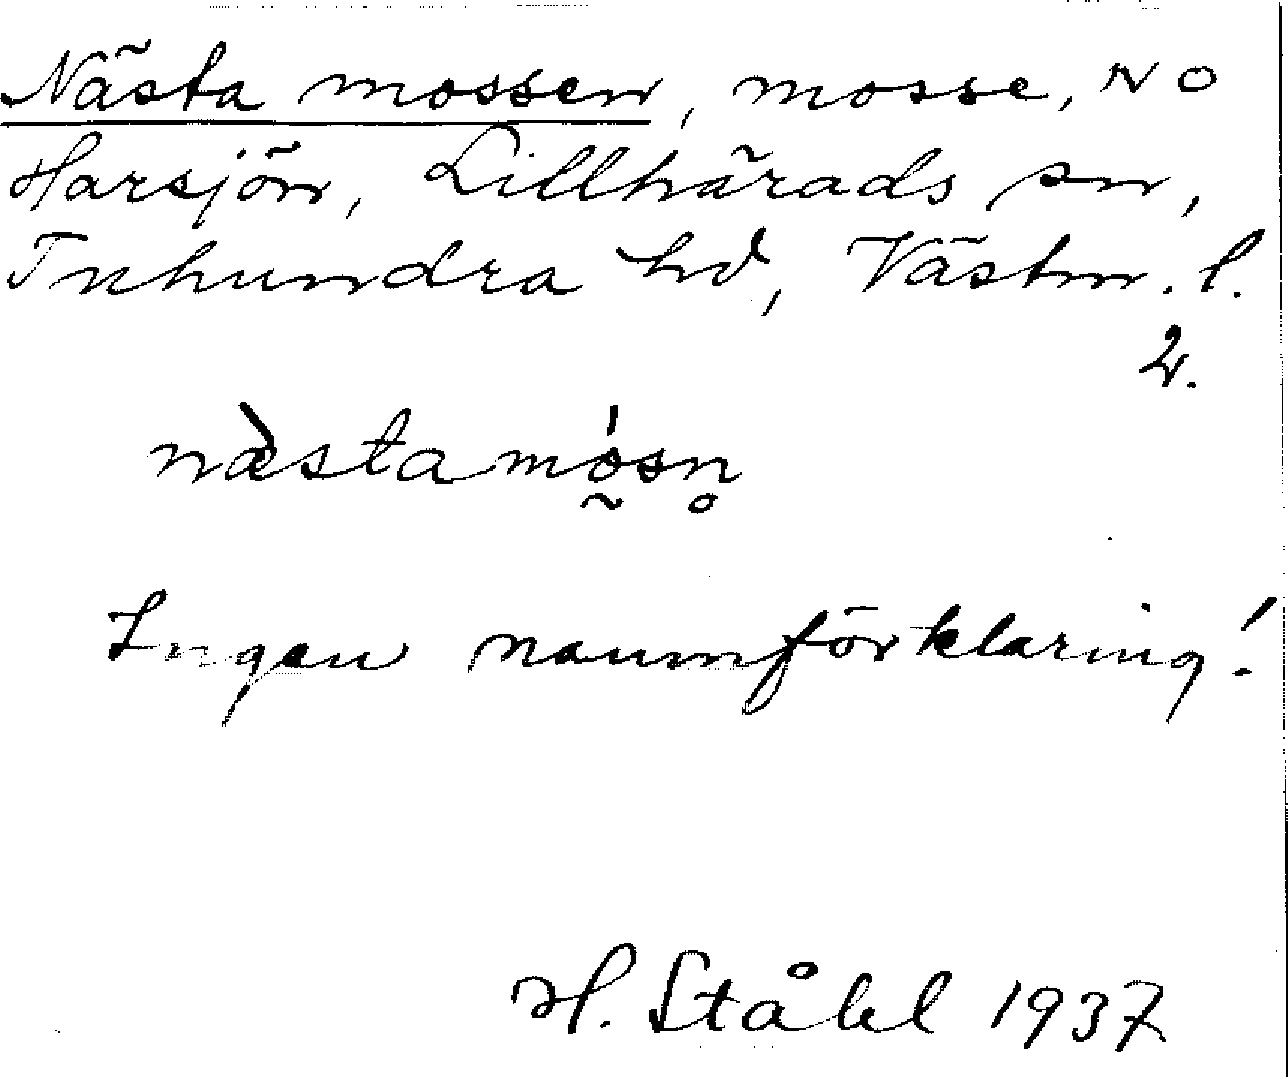 Nästa mossen, mosse, NO
Harsjön, Lillhärads sn,
Tuhundra hd, Västm. l.
2.
næ̀stamó̰sn̥
Ingen namnförklaring!
H. Ståhl 1937